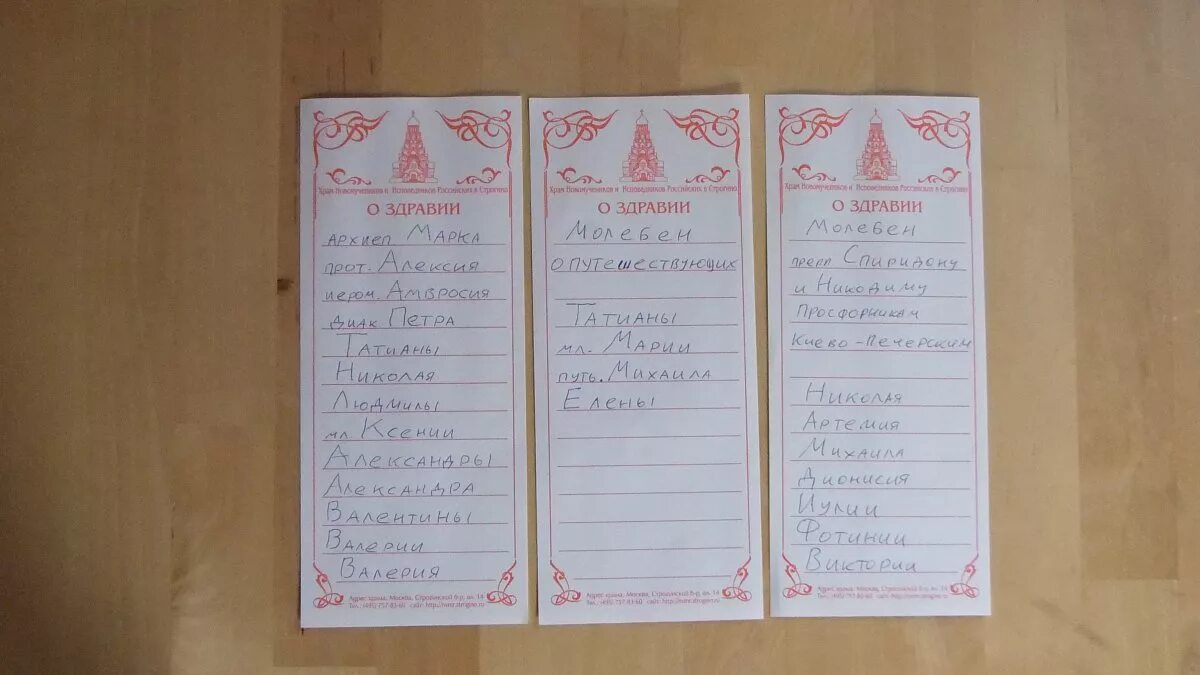 Храм Новомучеников и Исповедников Российских в Строгино
О ЗДРАВИИ
архиеп. Марка
прот. Алексия
иером. Амвросия
диак. Петра
Татианы
Николая
Людмилы
мл. Ксении
Александры
Александра
Валентины
Валерии
Валерия
Адрес храма: Москва, Строгинский б-р, вл. 14
Тел.: (495) 757-83-60 сайт: http://nmr.strogino.ru
Храм Новомучеников и Исповедников Российских в Строгино
О ЗДРАВИИ
Молебен
о путешествующих
Татианы
мл. Марии
путь. Михаила
Елены
Адрес храма: Москва, Строгинский б-р, вл. 14
Тел.: (495) 757-83-60 сайт: http://nmr.strogino.ru
Храм Новомучеников и Исповедников Российских в Строгино
О ЗДРАВИИ
Молебен
прерп Спиридону
и Никодиму
Просфорникам
Киево-Печерским
Николая
Артемия
Михаила
Дионисия
Иулии
Фотинии
Виктории
Адрес храма: Москва, Строгинский б-р, вл. 14
Тел.: (495) 757-83-60 сайт: http://nmr.strogino.ru